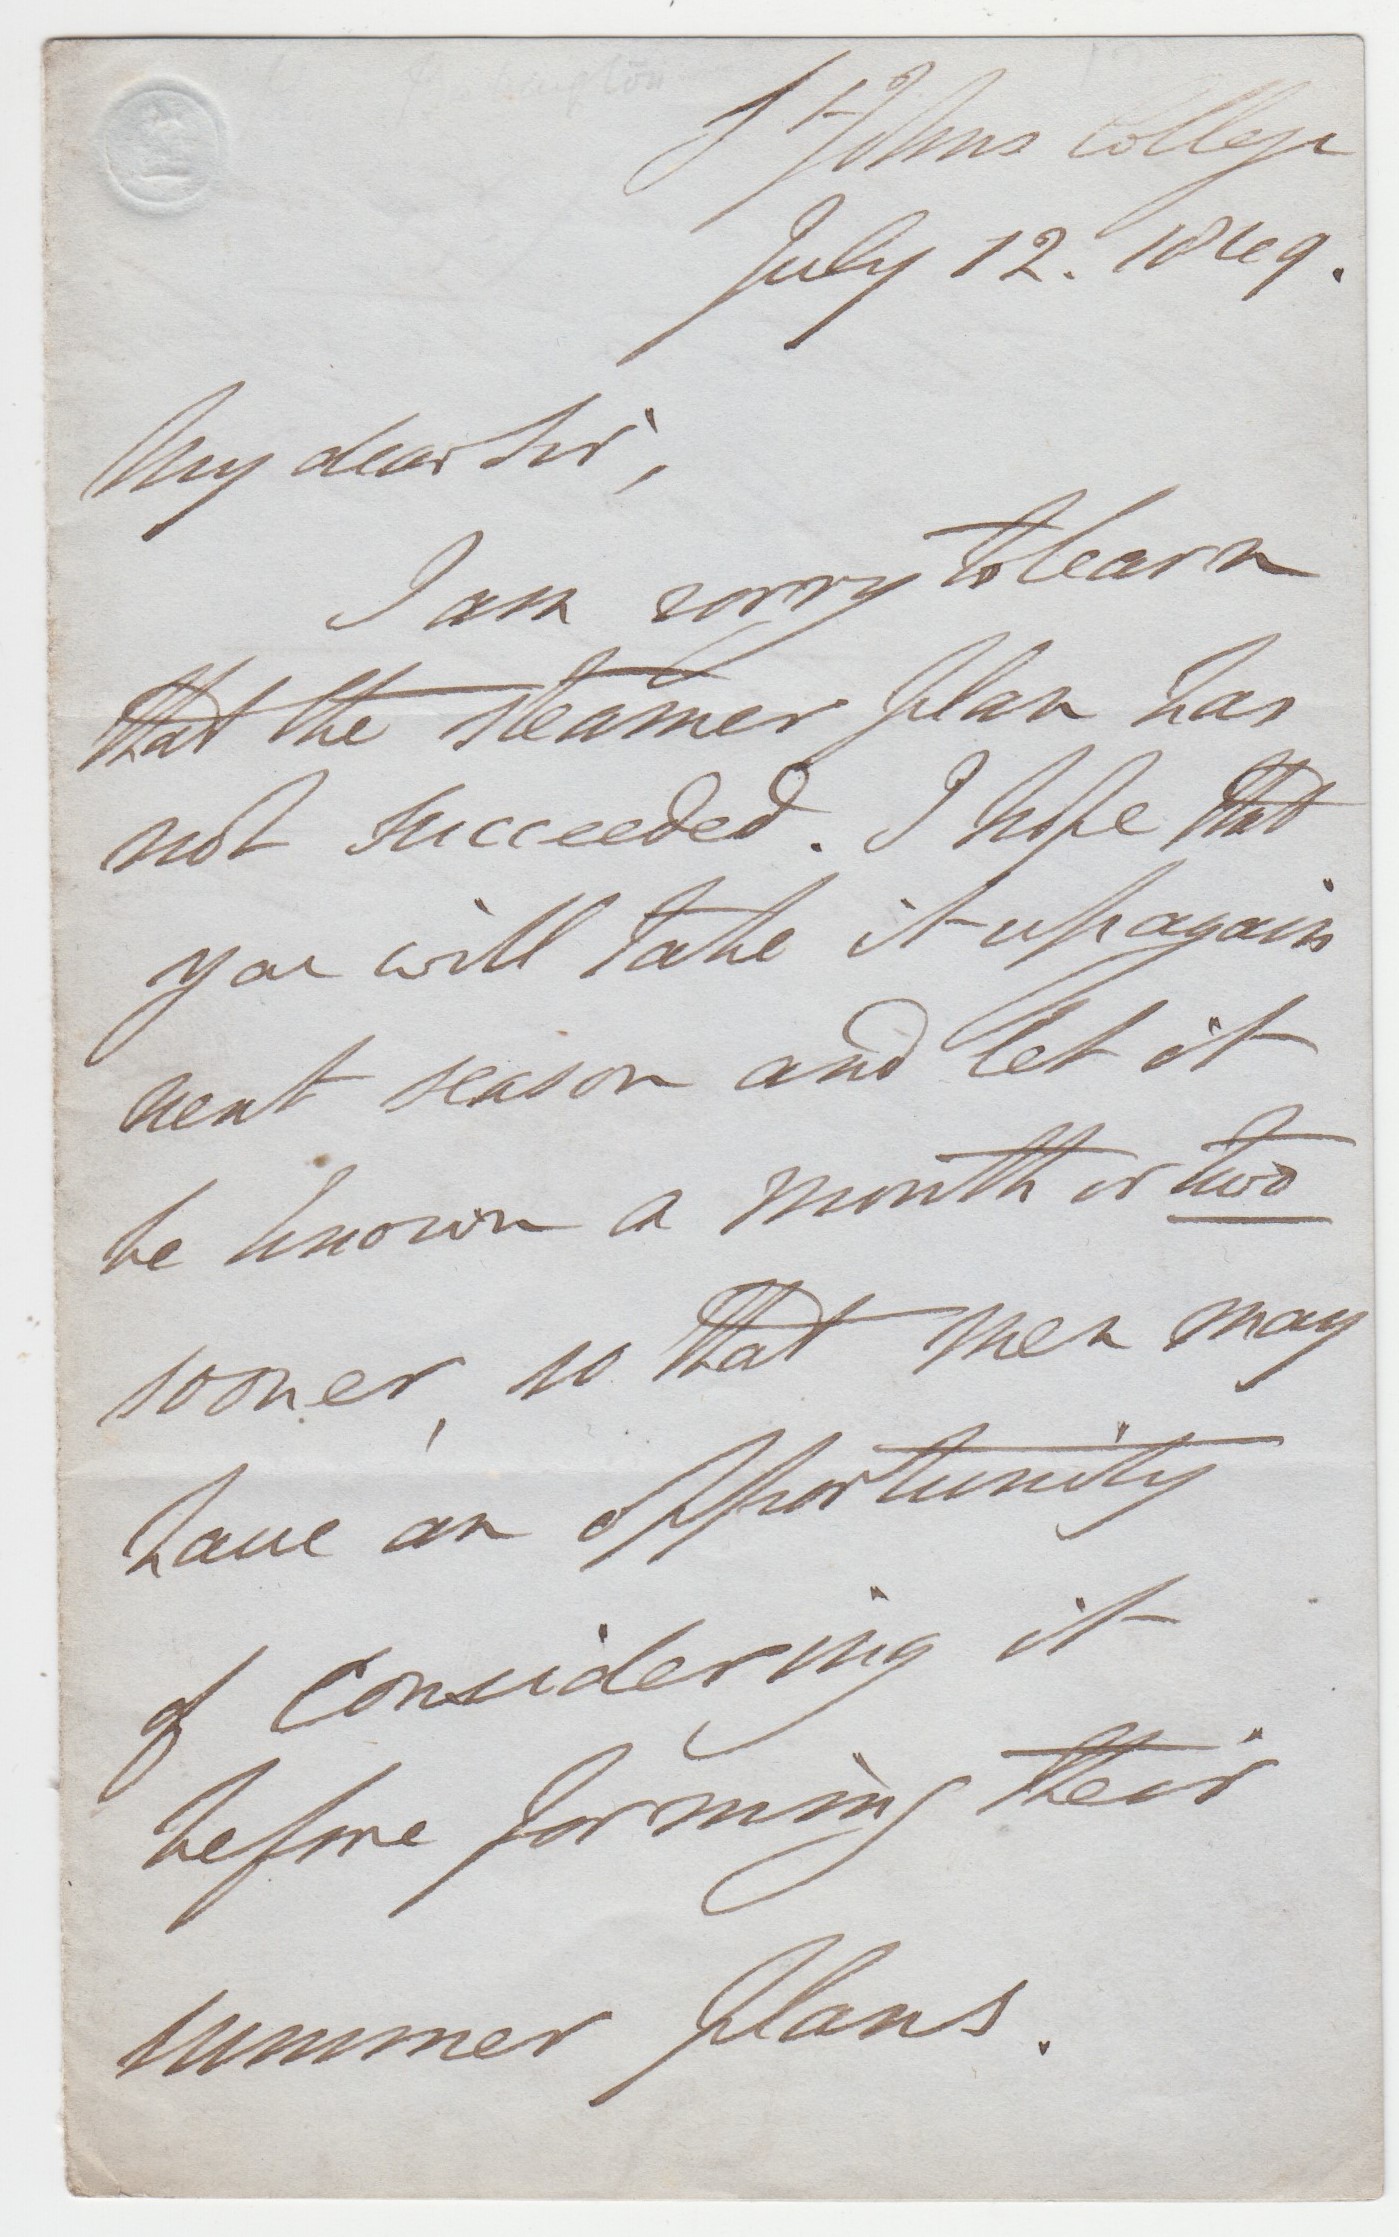 St Johns College
July 12. 1869.
My dear Sir,
I am sorry to learn
that the steamer plan has
not succeeded. I hope that
you will take it up again
next season and let it
be known a month or two
sooner, so that men may
have an opportunity
of considering it
before forming their
summer plans.